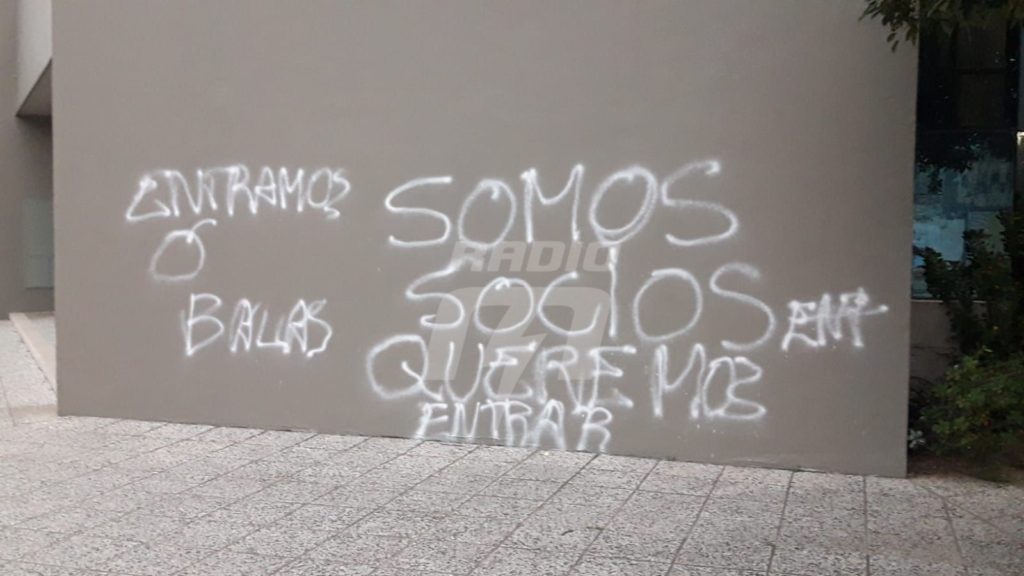 ENTRAMOS
Ó
BALAS
SOMOS
SOCIOS
QUEREMOS
ENTRAR
ENT
RADIO
17